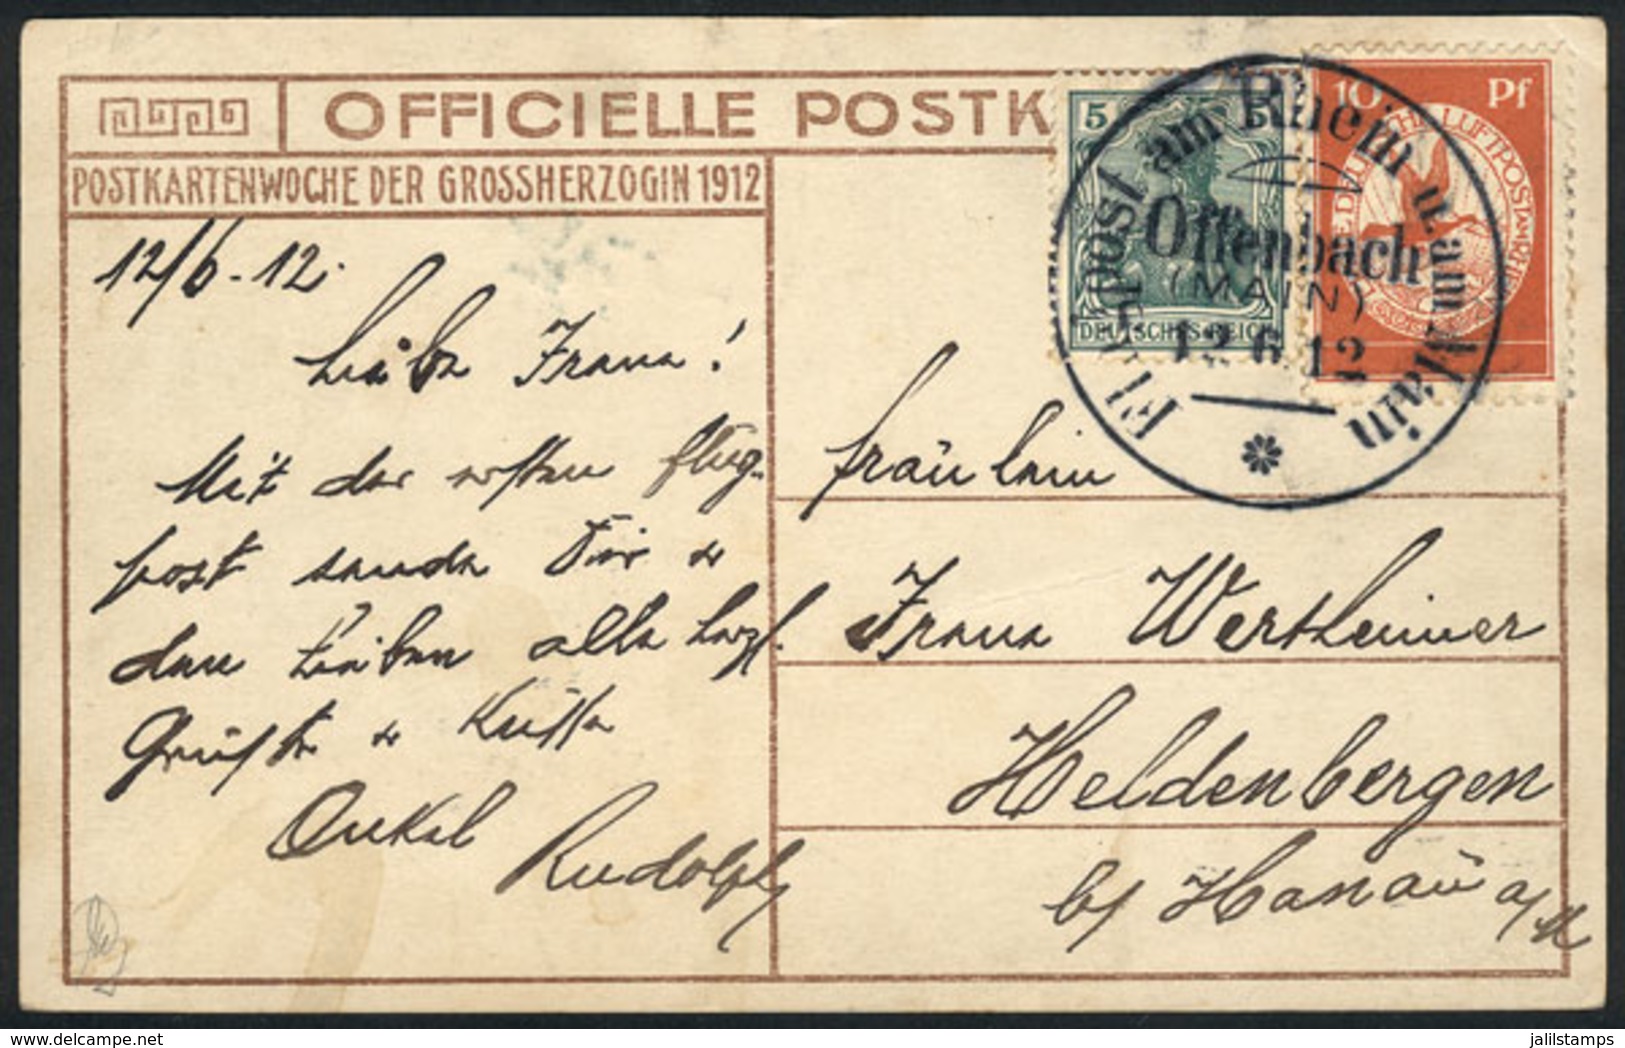 OFFICIELLE POSTK
POSTKARTENWOCHE DER GROSSHERZOGIN 1912
5
DEUTSCHES REICH
10 Pf
Flugpost am Rhein u. am Main
Offenbach
(MAIN)
12.6.12
12/6.12.
Liebe Frana!
Mit der ersten Flug-
post sende Dir u
den Lieben alle herzl.
Grüsse u Küsse
Onkel
Rudolph
Fräulein
Frana Wertheimer
Heldenbergen
b/ Hanau a/M
jalilstamps
delcampe.net